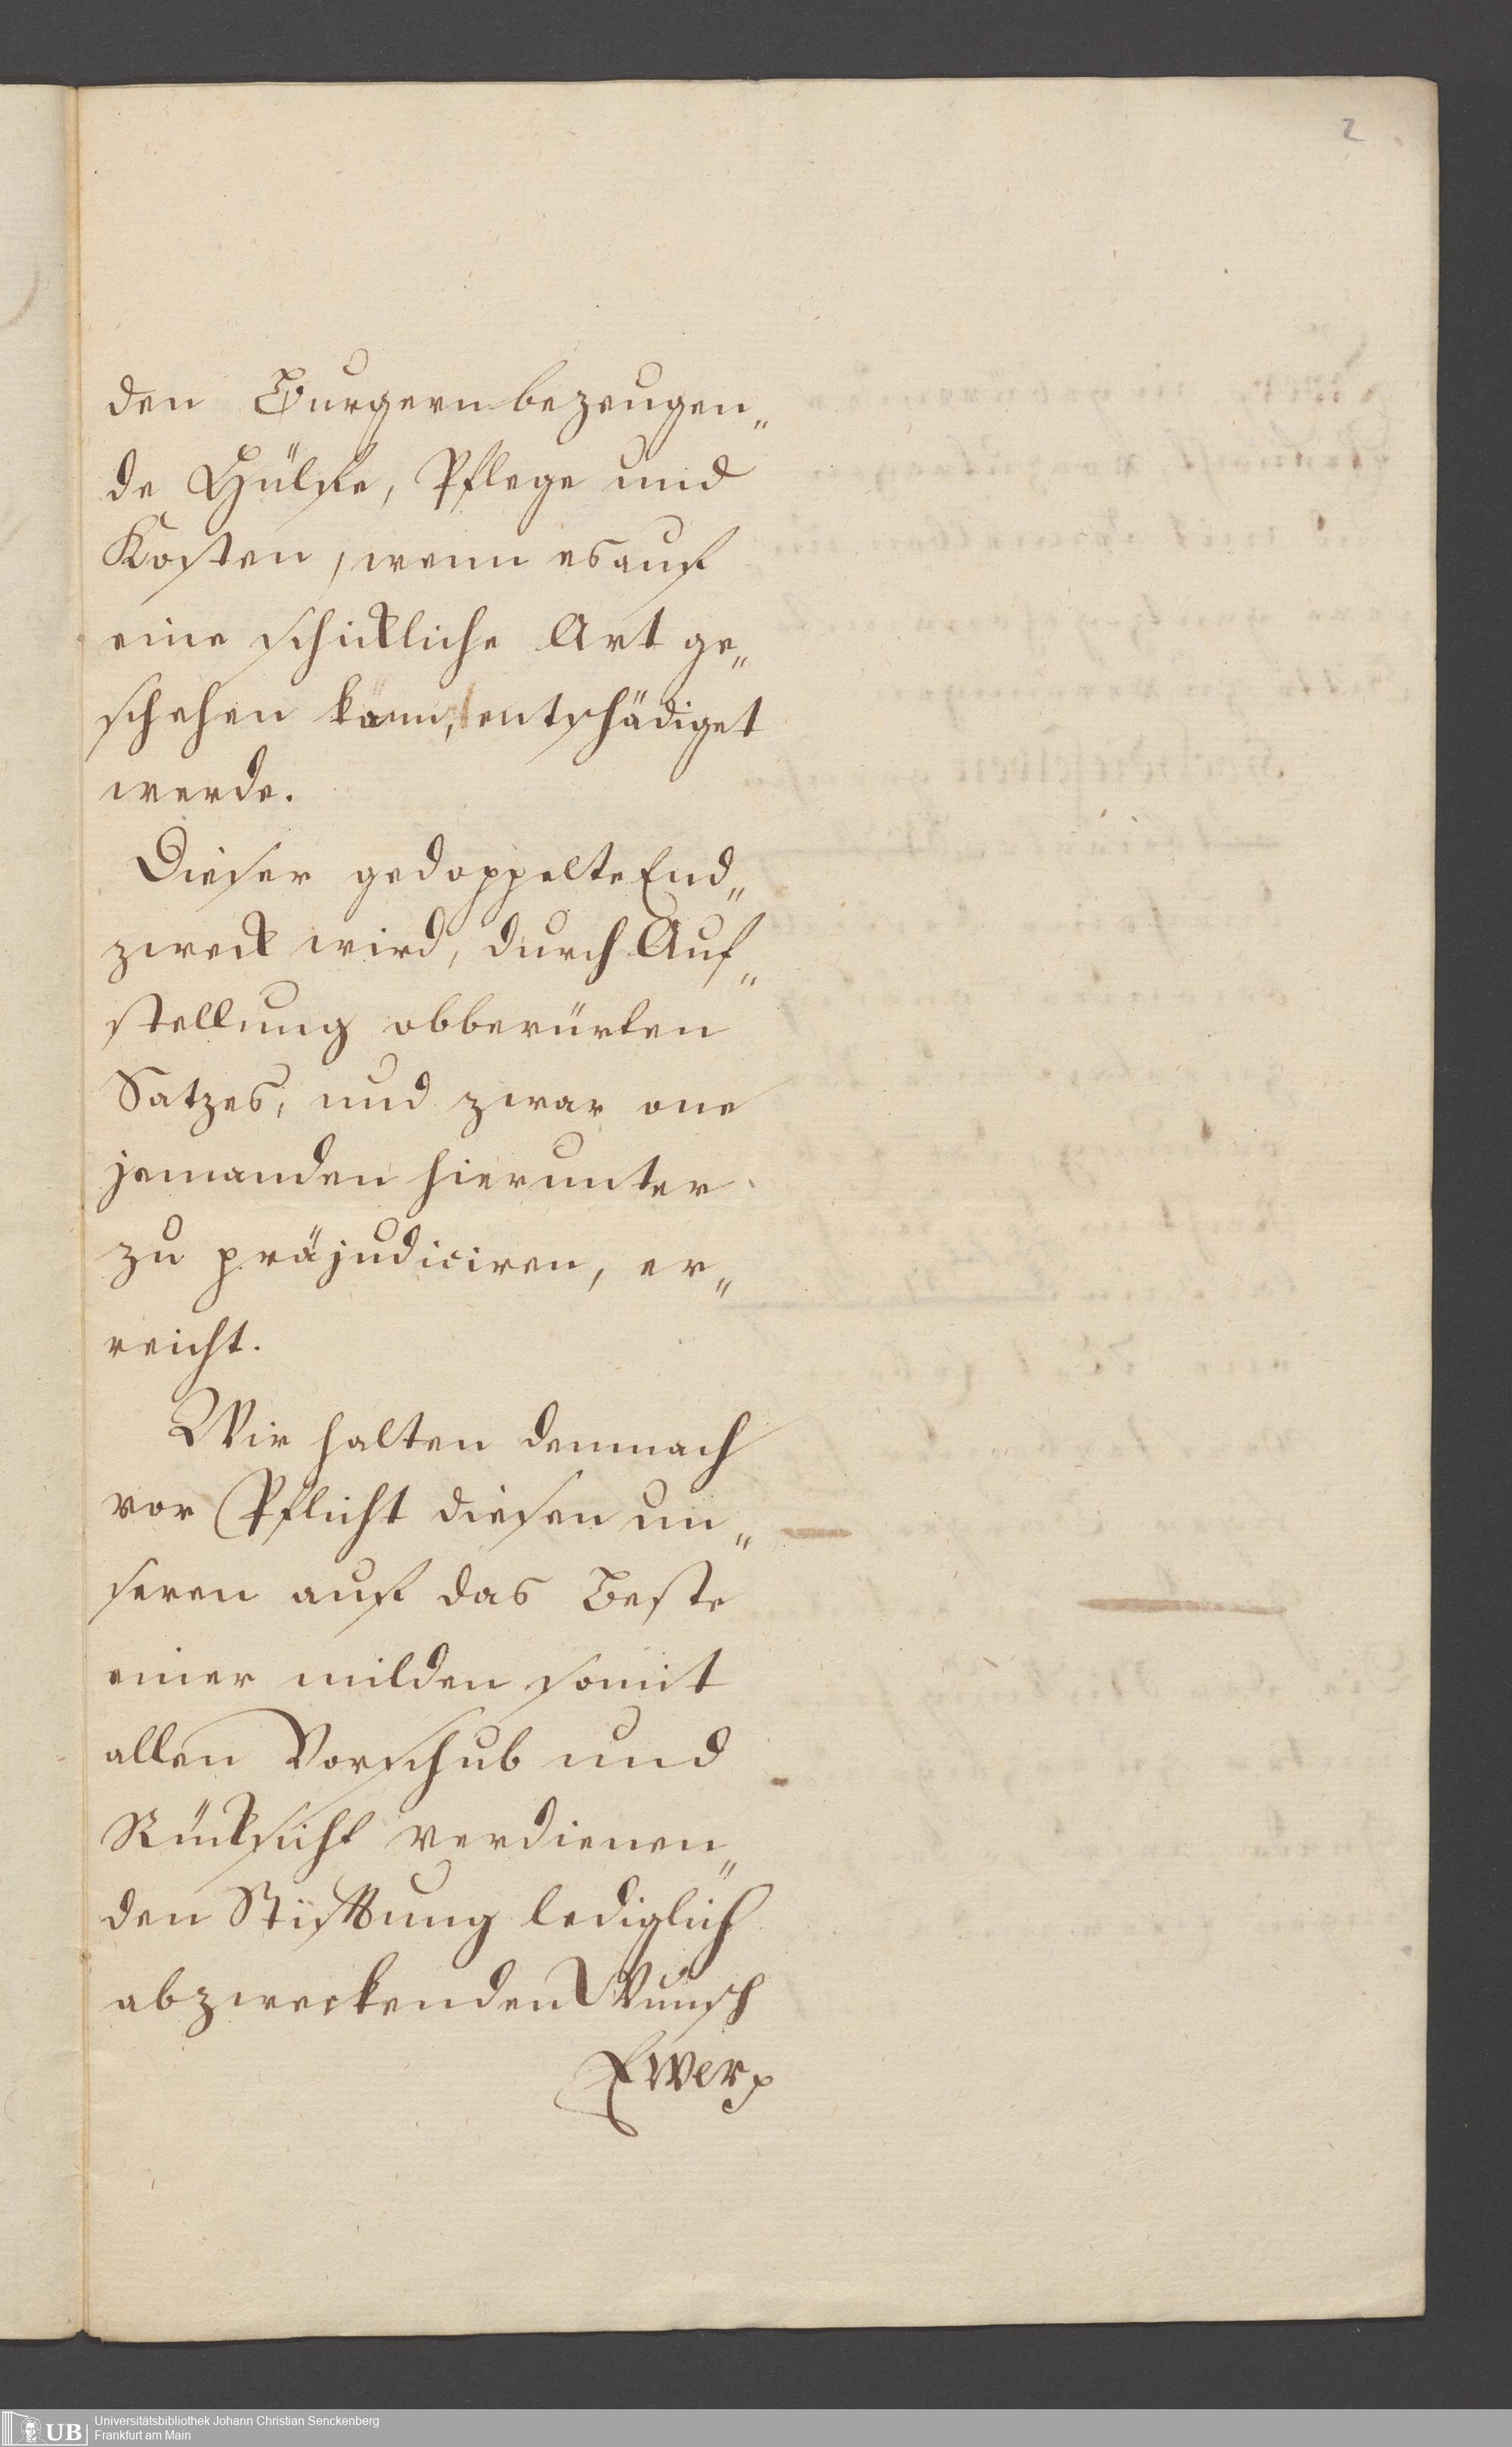 2
den Burgern bezeugen„
de Hülfe, Pflege und
Kosten, wenn es auf
eine schickliche Art ge„
schehen kann, entschädiget
werde.
Dieser gedoppelte End„
zweck wird, durch Auf„
stellung obberürten
Satzes, und zwar one
jemanden hierunter
zu präjudiciren, er„
reicht.
Wir halten demnach
vor Pflicht diesen un„
seren auf das Beste
einer milden somit
allen Vorschub und
Rücksicht verdienen„
den Stifftung lediglich
abzweckenden Wunsch
Ewer
UB
Universitätsbibliothek Johann Christian Senckenberg
Frankfurt am Main